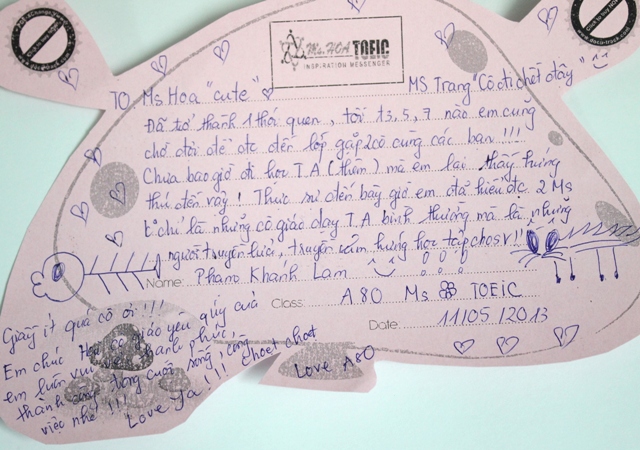 Ms. HOA TOEIC
INSPIRATION MESSENGER
TO Ms Hoa "cute" MS Trang "Cô đi chết đây"
Đã trở thành 1 thói quen, tối t3,5,7 nào em cũng
chờ đợi để đc đến lớp gặp 2 cô cùng các bạn !!!
Chưa bao giờ đi học T.A (thêm) mà em lại thấy hứng
thú đến vậy ! Thực sự đến bây giờ em đã hiểu đc 2 Ms
k chỉ là những cô giáo dạy T.A bình thường mà là những
người truyền lửa, truyền cảm hứng học tập cho sv !!!
Name: Phạm Khánh Lam
Class: A80 Ms TOEIC
Date: 11/05/2013
Giảng ít quá cô ơi !!!
Em chúc cô giáo yêu quý của
em luôn vui vẻ, hạnh phúc,
thành công trong cuộc sống, công
việc nhé !!!
Love Ya !!! choet choet
Love A80